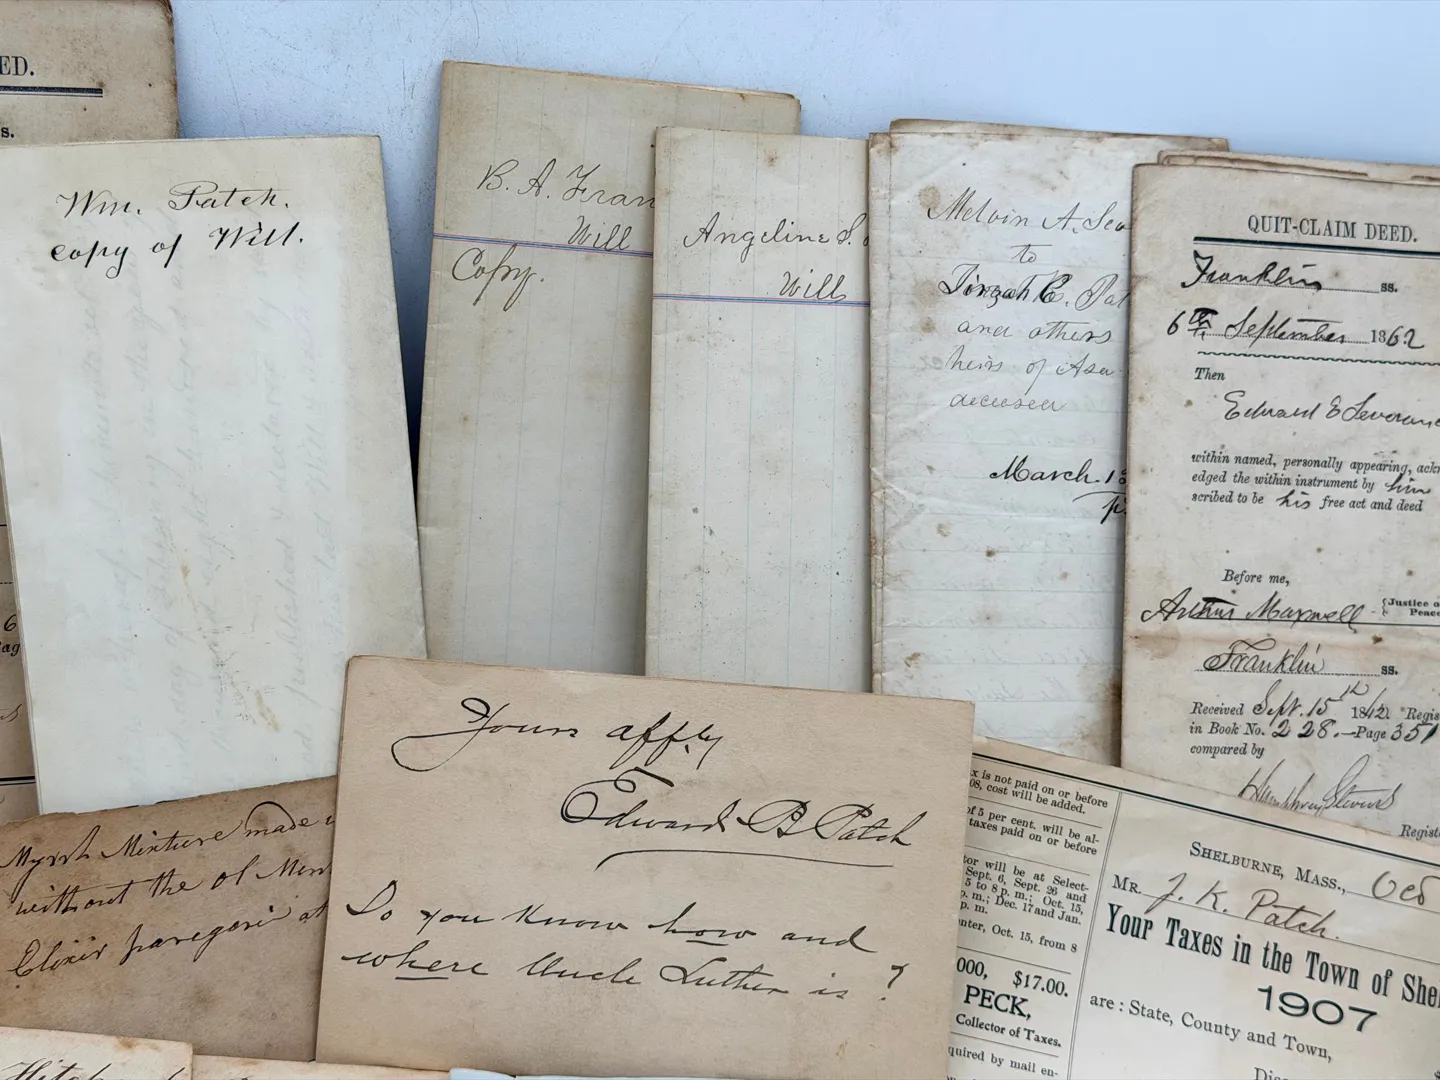 ED.
s.
Wm. Patch.
copy of Will.
B. A. Fran
Will
Copy.
Angeline S.
Will
Melvin A. Sev
to
Tirzah C. Pat
and others
heirs of Asa
deceased
March 13
QUIT-CLAIM DEED.
Franklin ss.
6th September 1862
Then
Edward E Severanc
within named, personally appearing, ackn
edged the within instrument by him
scribed to be his free act and deed
Before me,
Arthur Maxwell {Justice o
Peace
Franklin ss.
Received Sept. 15th 1862 Regis
in Book No. 228.—Page 351
compared by
Humphrey Stevens
Registe
6
ag
Myrrh Mixture made
without the of
Elixir paregoric at
Yours affly
Edward B Patch
Do you know how and
where Uncle Luther is ?
x is not paid on or before
08, cost will be added.
of 5 per cent. will be al-
taxes paid on or before
tor will be at Select-
Sept. 6, Sept. 26 and
5 to 8 p. m.; Oct. 15,
p. m.; Dec. 17 and Jan.
p. m.
nter, Oct. 15, from 8
000, $17.00.
PECK,
Collector of Taxes.
quired by mail en-
SHELBURNE, MASS.,
MR. J. K. Patch.
Your Taxes in the Town of Shel
1907
are : State, County and Town,
Hitch